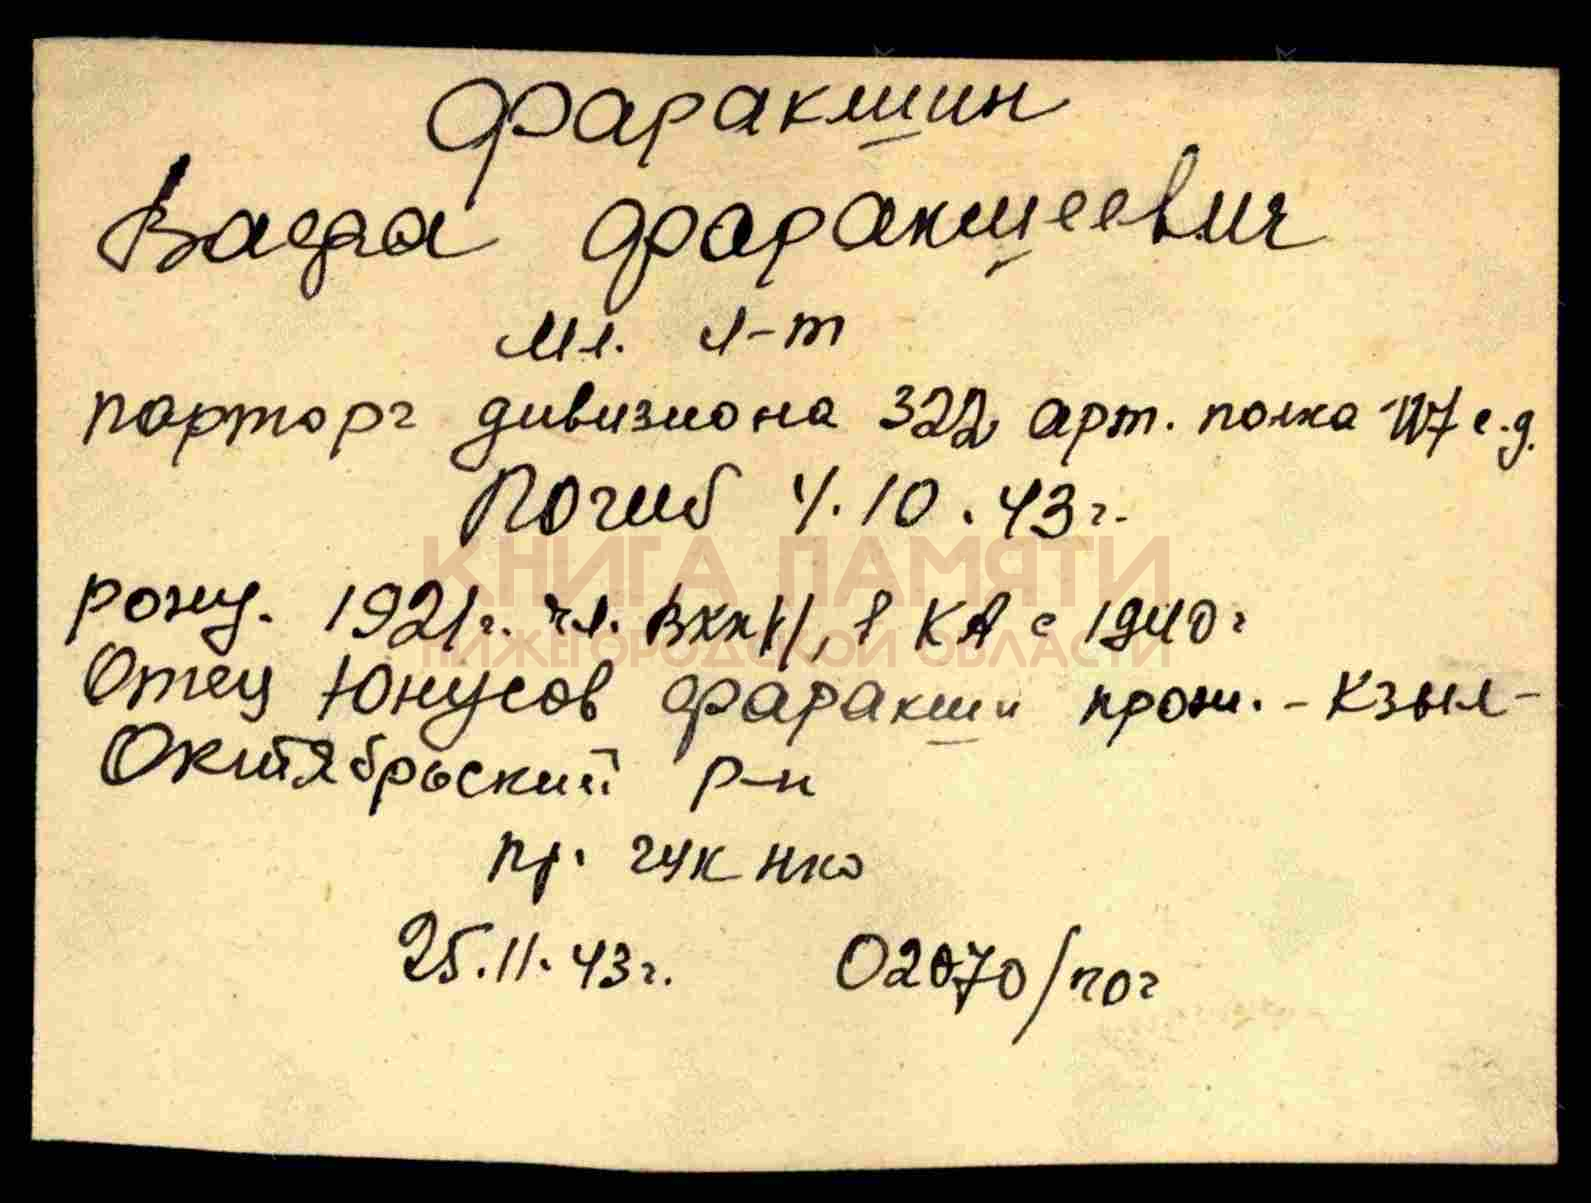 Фаракшин
Вафа Фаракшеевич
Мл. л-т
парторг дивизиона 322 арт. полка 117 с.д.
Погиб 4.10.43г.
рожд. 1921г. чл. ВКП/, в КА с 1940г
КНИГА ПАМЯТИ
НИЖЕГОРОДСКОЙ ОБЛАСТИ
Отец Юнусов Фаракши прож. - Кзыл-
Октябрьский р-н
пр. ГУК НКО
25.11.43г. 02070/пог